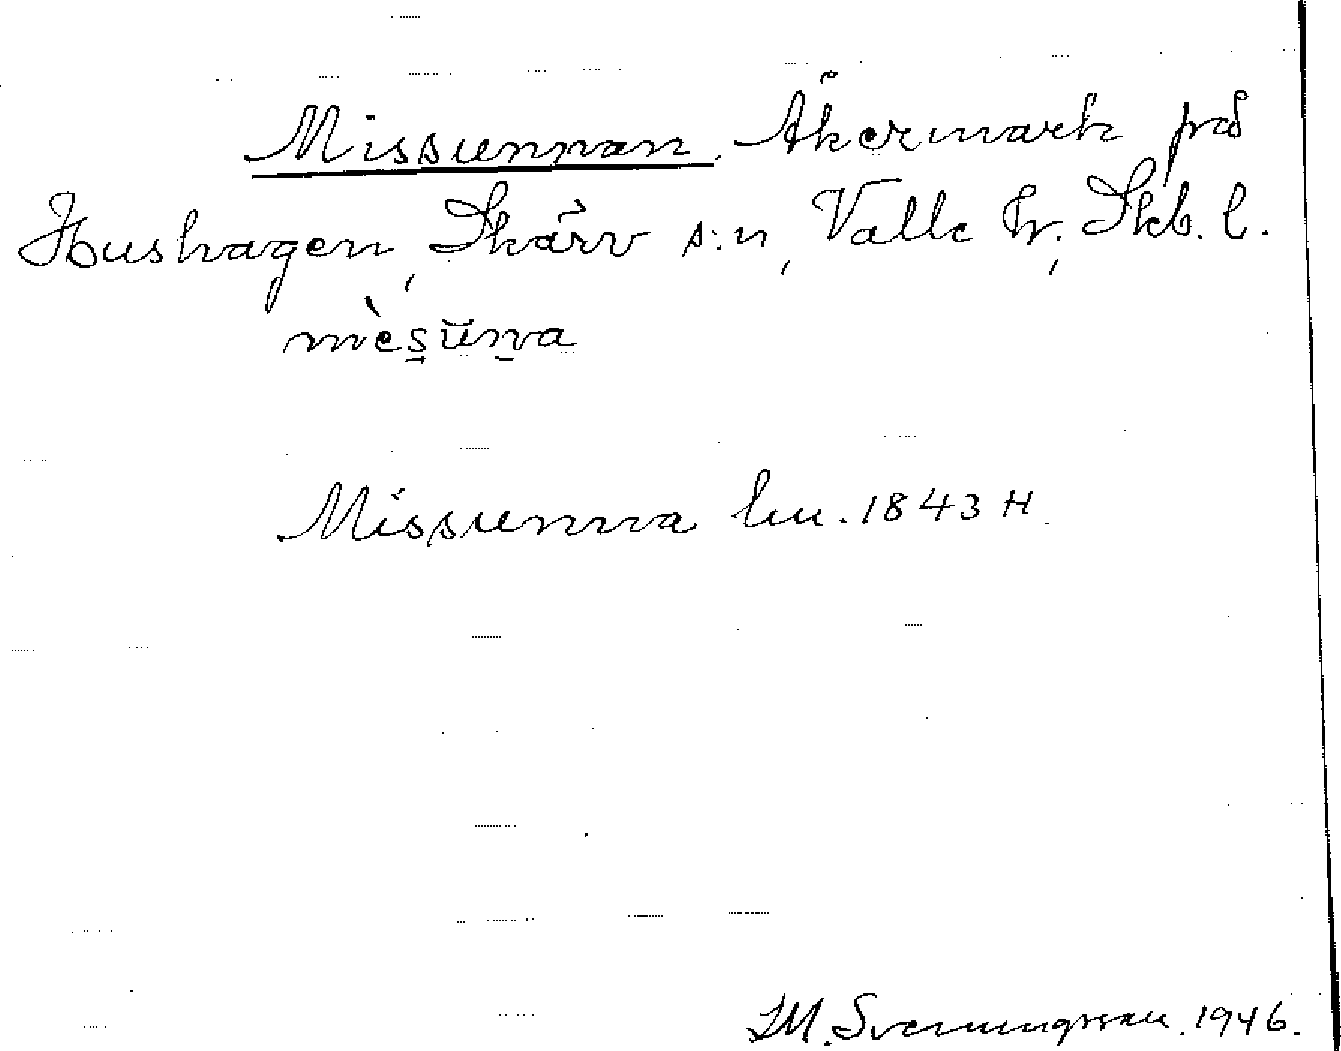 Missunnan. Åkermark på
Hushagen, Skärv s:n, Valle hr, Skb. l.
mèsu̇na
Missunna lm. 1843 H.
I.M. Svenungsson. 1946.